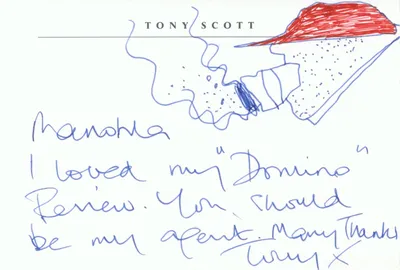 TONY SCOTT
Manohla
I loved my "Domino"
Review. You should
be my agent. Many Thanks
Tony X